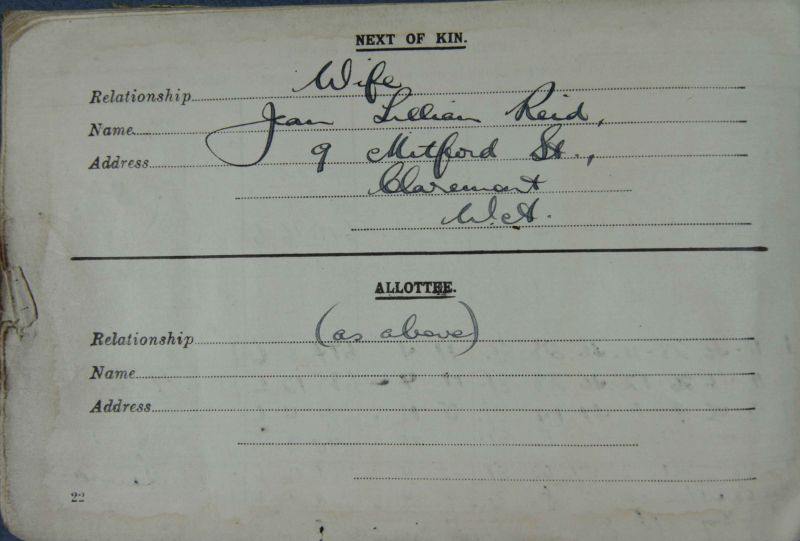 NEXT OF KIN.
Relationship Wife
Name Jean Lillian Reid,
Address 9 Mitford St.,
Claremont
W.A.
ALLOTTEE.
Relationship (as above)
Name
Address
22